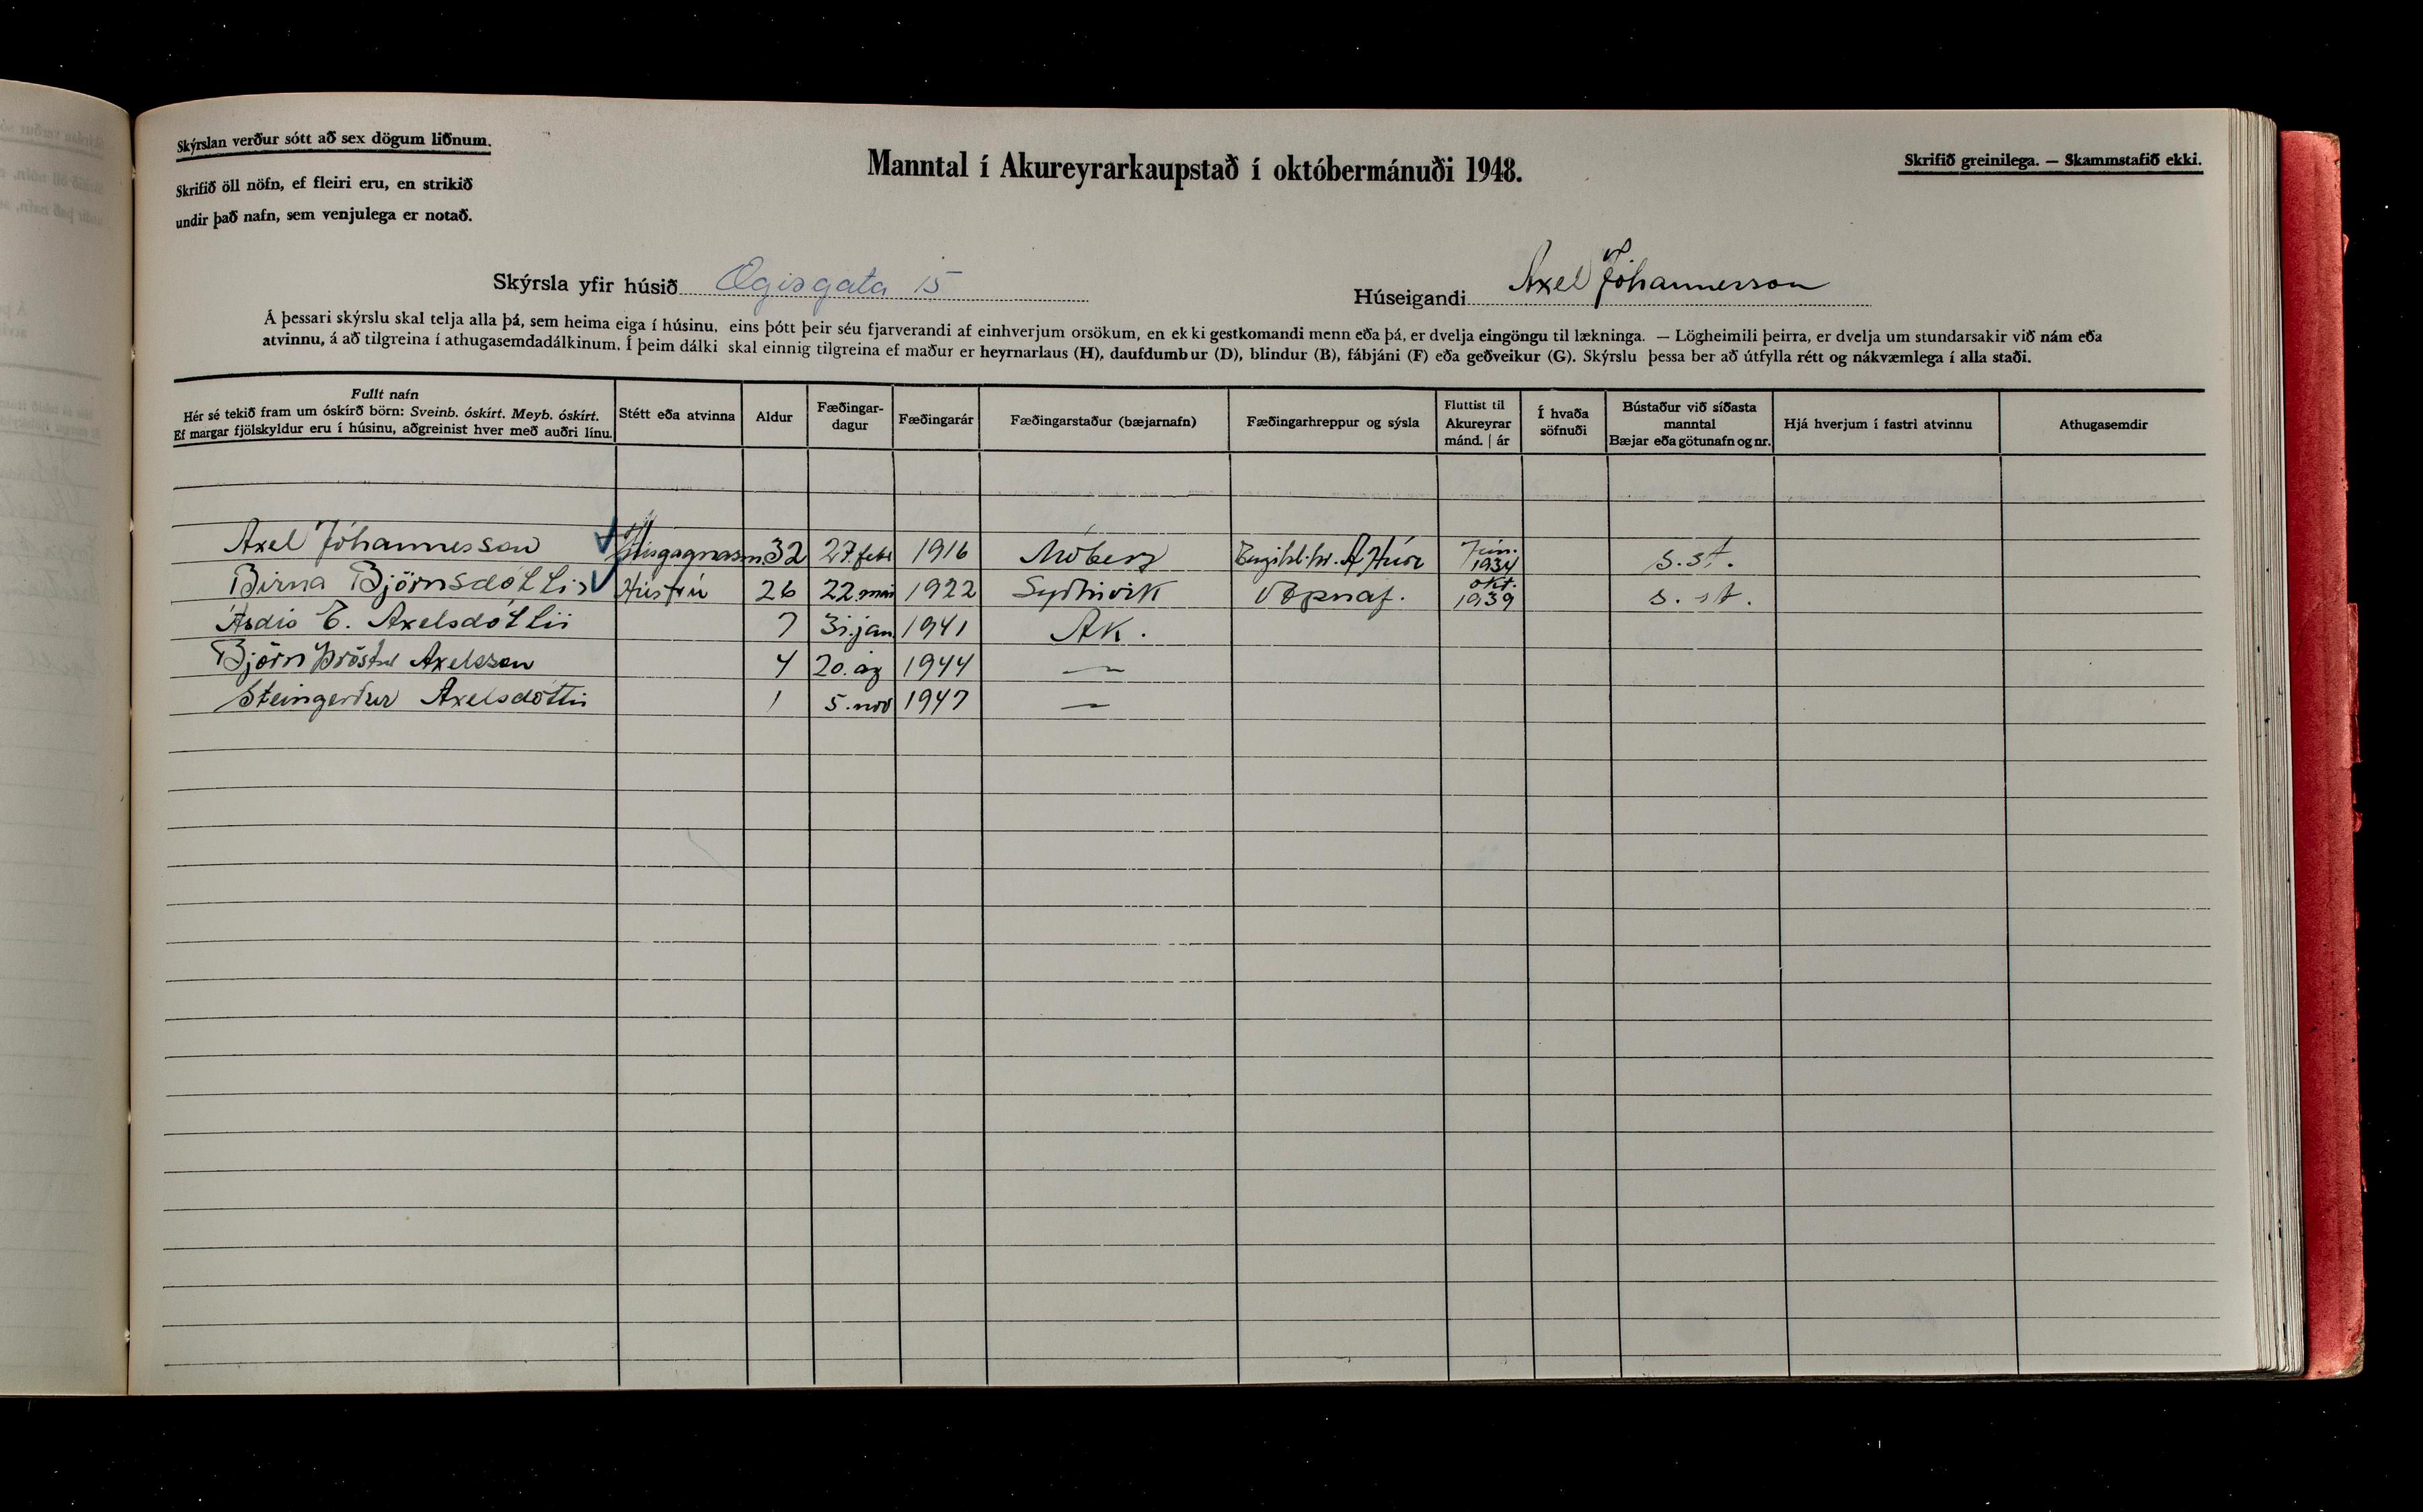 Skýrslan verður sótt að sex dögum liðnum.
Skrifið öll nöfn, ef fleiri eru, en strikið
undir það nafn, sem venjulega er notað.
Manntal í Akureyrarkaupstað í októbermánuði 1948.
Skrifið greinilega. — Skammstafið ekki.
Skýrsla yfir húsið Ægisgata 15
Húseigandi Axel Jóhannesson
Á þessari skýrslu skal telja alla þá, sem heima eiga í húsinu, eins þótt þeir séu fjarverandi af einhverjum orsökum, en ekki gestkomandi menn eða þá, er dvelja eingöngu til lækninga. — Lögheimili þeirra, er dvelja um stundarsakir við nám eða
atvinnu, á að tilgreina í athugasemdadálkinum. Í þeim dálki skal einnig tilgreina ef maður er heyrnarlaus (H), daufdumbur (D), blindur (B), fábjáni (F) eða geðveikur (G). Skýrslu þessa ber að útfylla rétt og nákvæmlega í alla staði.
Fullt nafn
Hér sé tekið fram um óskírð börn: Sveinb. óskírt. Meyb. óskírt.
Ef margar fjölskyldur eru í húsinu, aðgreinist hver með auðri línu.
Stétt eða atvinna
Aldur
Fæðingar-
dagur
Fæðingarár
Fæðingarstaður (bæjarnafn)
Fæðingarhreppur og sýsla
Fluttist til
Akureyrar
mánd. | ár
Í hvaða
söfnuði
Bústaður við síðasta
manntal
Bæjar eða götunafn og nr.
Hjá hverjum í fastri atvinnu
Athugasemdir
Axel Jóhannesson 32 27. febr 1916 Móberg A Húv Jún. 1934 s.st.
Birna Björnsdóttir Húsfrú 26 22 mai 1922 Syðrivik Vopnaf. okt. 1939 s. st.
Ásdis E. Axelsdóttir 7 31. jan 1941 Ak.
Björn Þröstur Axelsson 4 20. ág 1944 —
Steingerður Axelsdóttir 1 5. nov 1947 —